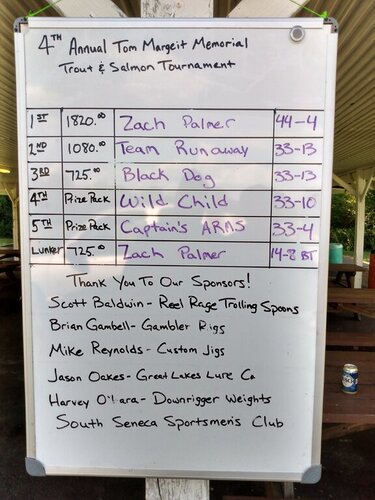 4TH Annual Tom Margeit Memorial
Trout & Salmon Tournament
1ST 1820.00 Zach Palmer 44-4
2ND 1080.00 Team Runaway 33-13
3RD 725.00 Black Dog 33-13
4TH Prize Pack Wild Child 33-10
5TH Prize Pack Captain's ARMS 33-4
Lunker 725.00 Zach Palmer 14-8 BT
Thank You To Our Sponsors!
Scott Baldwin - Reel Rage Trolling Spoons
Brian Gambell - Gambler Rigs
Mike Reynolds - Custom Jigs
Jason Oakes - Great Lakes Lure Co
Harvey - Downrigger Weights
South Seneca Sportsmen's Club